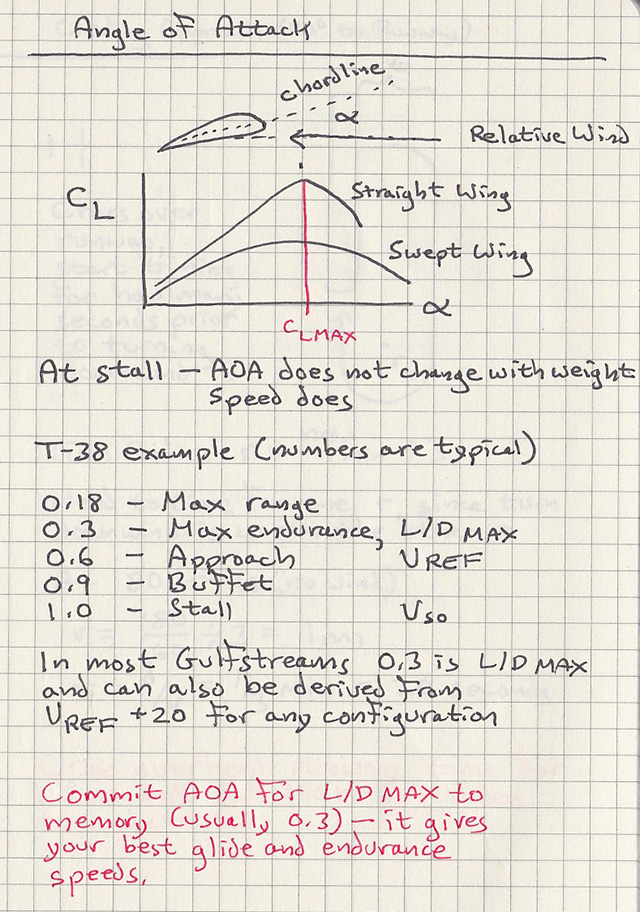 Angle of Attack
chordline
α
Relative Wind
CL
Straight Wing
Swept Wing
α
CLMAX
At stall — AOA does not change with weight
speed does
T-38 example (numbers are typical)
0.18 — Max range
0.3 — Max endurance, L/D MAX
0.6 — Approach VREF
0.9 — Buffet
1.0 — Stall VSO
In most Gulfstreams 0.3 is L/D MAX
and can also be derived from
VREF +20 for any configuration
Commit AOA for L/D MAX to
memory (usually 0.3) — it gives
your best glide and endurance
speeds.